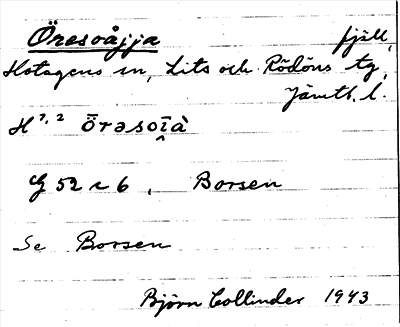 Öresoåjja fjäll,
Hotagens sn, Lits och Rödöns tg,
Jämtl. l.
H 7, 2 örəsoi̯à
G 52 r 6, Borsen
Se Borsen
Björn Collinder 1943